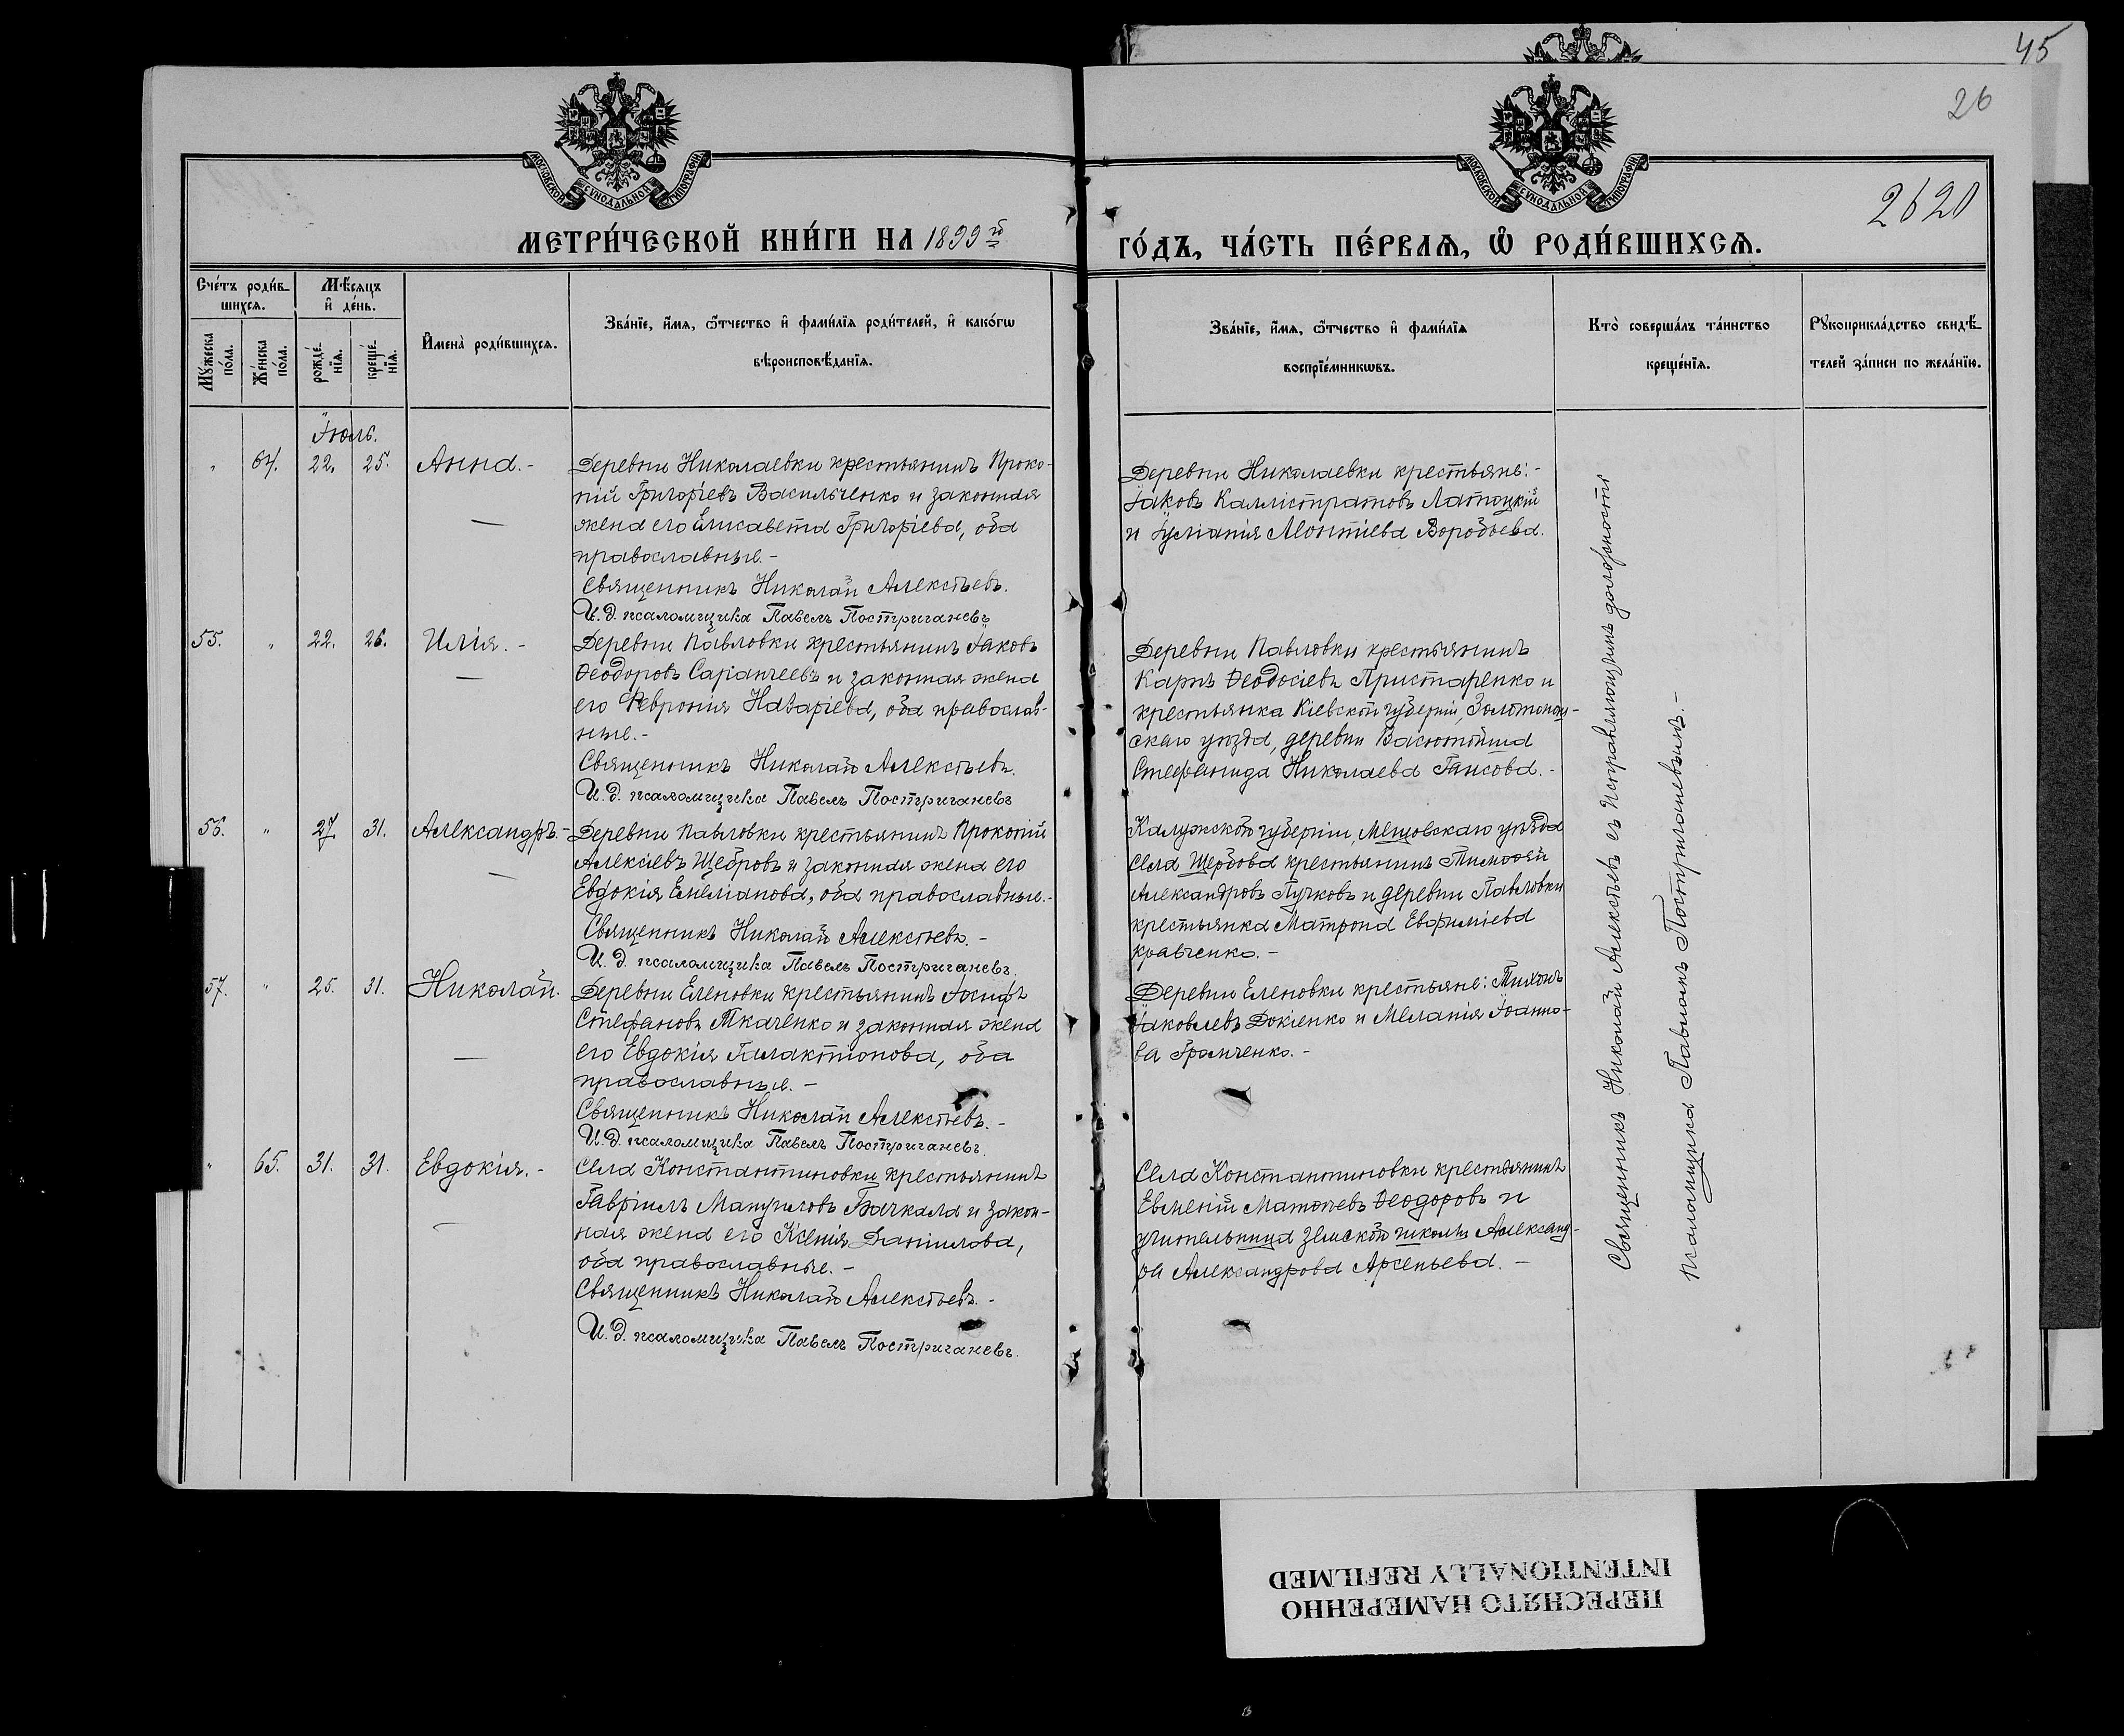 45
26
МОСКОВСКОЙ СУНОДАЛЬНОЙ ТИПОГРАФІИ
МОСКОВСКОЙ СУНОДАЛЬНОЙ ТИПОГРАФІИ
2620
МЕТРИ́ЧЕСКОЙ КНИ́ГИ НА 1899 й
ГО́ДЪ, ЧА́СТЬ ПЕ́РВАѦ, Ѡ РОДИ́ВШИХСѦ.
Сче́тъ роди́в-
шихсѧ.
Мꙋжеска по́ла.
Же́нска по́ла.
Мѣ́сѧцъ
и҆ де́нь.
рожде́-
нїѧ.
креще́-
нїѧ.
И҆мена̀ роди́вшихсѧ.
Зва́нїе, и҆́мѧ, ѻ҆́тчество и҆ фами́лїѧ роди́телей, и҆ како́гѡ
вѣроисповѣ́данїѧ.
Зва́нїе, и҆́мѧ, ѻ҆́тчество и҆ фами́лїѧ
воспрїе́мникѡвъ.
Кто̀ соверша́лъ та́инство
креще́нїѧ.
Рꙋкоприкла́дство свидѣ́-
телей за́писи по жела́нїю.
Іюль.
" 64. 22. 25. Анна.-
Деревни Николаевки крестьянинъ Проко-
пій Григоріевъ Васильченко и законная
жена его Елисавета Григоріева, оба
православные.-
Священникъ Николай Алексѣевъ.
И.д. псаломщика Павелъ Постриганевъ
Деревни Николаевки крестьяне:-
Іаковъ Каллістратовъ Латоцкій
и Іуліанія Монтіева Воробьева.
55. " 22. 26. Илія.-
Деревни Павловки крестьянинъ Іаковъ
Ѳеодоровъ Саранчеевъ и законная жена
его Февронія Назаріева, оба православ-
ные.-
Священникъ Николай Алексѣевъ.
И.д. псаломщика Павелъ Постриганевъ
Деревни Павловки крестьянинъ
Карпъ Ѳеодосіевъ Пристаренко и
крестьянка Кіевской губерніи, Золотонош-
скаго уѣзда, деревни
Стефанида Николаева
56. " 27. 31. Александръ.-
Деревни Павловки крестьянинъ Прокопій
Алексіевъ Щебровъ и законная жена его
Евдокія Емеліанова, оба православные.-
Священникъ Николай Алексѣевъ.-
И.д. псаломщика Павелъ Постриганевъ.
Калужской губерніи, Мещовскаго уѣзда
села Щербова крестьянинъ Тимоѳей
Александровъ Пучковъ и деревни Павловки
крестьянка Матрона Евфиміева
Кравченко.-
57. " 25. 31. Николай.
Деревни Еленовки крестьянинъ Іосифъ
Стефановъ Ткаченко и законная жена
его Евдокія Галактіонова, оба
православные.-
Священникъ Николай Алексѣевъ.-
И.д. псаломщика Павелъ Постриганевъ.
Деревни Еленовки крестьяне: Тихонъ
Іаковлевъ Докіенко и Меланія Іоанно-
ва Громченко.-
" 65. 31. 31. Евдокія.-
Села Константиновки крестьянинъ
Гавріилъ Мануиловъ Бачкала и закон-
ная жена его Ксенія Даніилова,
оба православные.-
Священникъ Николай Алексѣевъ.-
И.д. псаломщика Павелъ Постриганевъ.
Села Константиновки крестьянинъ
Евменій Матѳѣевъ Ѳеодоровъ и
учительница земской школы Александ-
ра Александрова Арсеньева.-
Священникъ Николай Алексѣевъ съ исправляющимъ должность
псаломщика Павломъ Постриганевымъ.-
ПЕРЕСНЯТО НАМЕРЕННО
INTENTIONALLY REFILMED